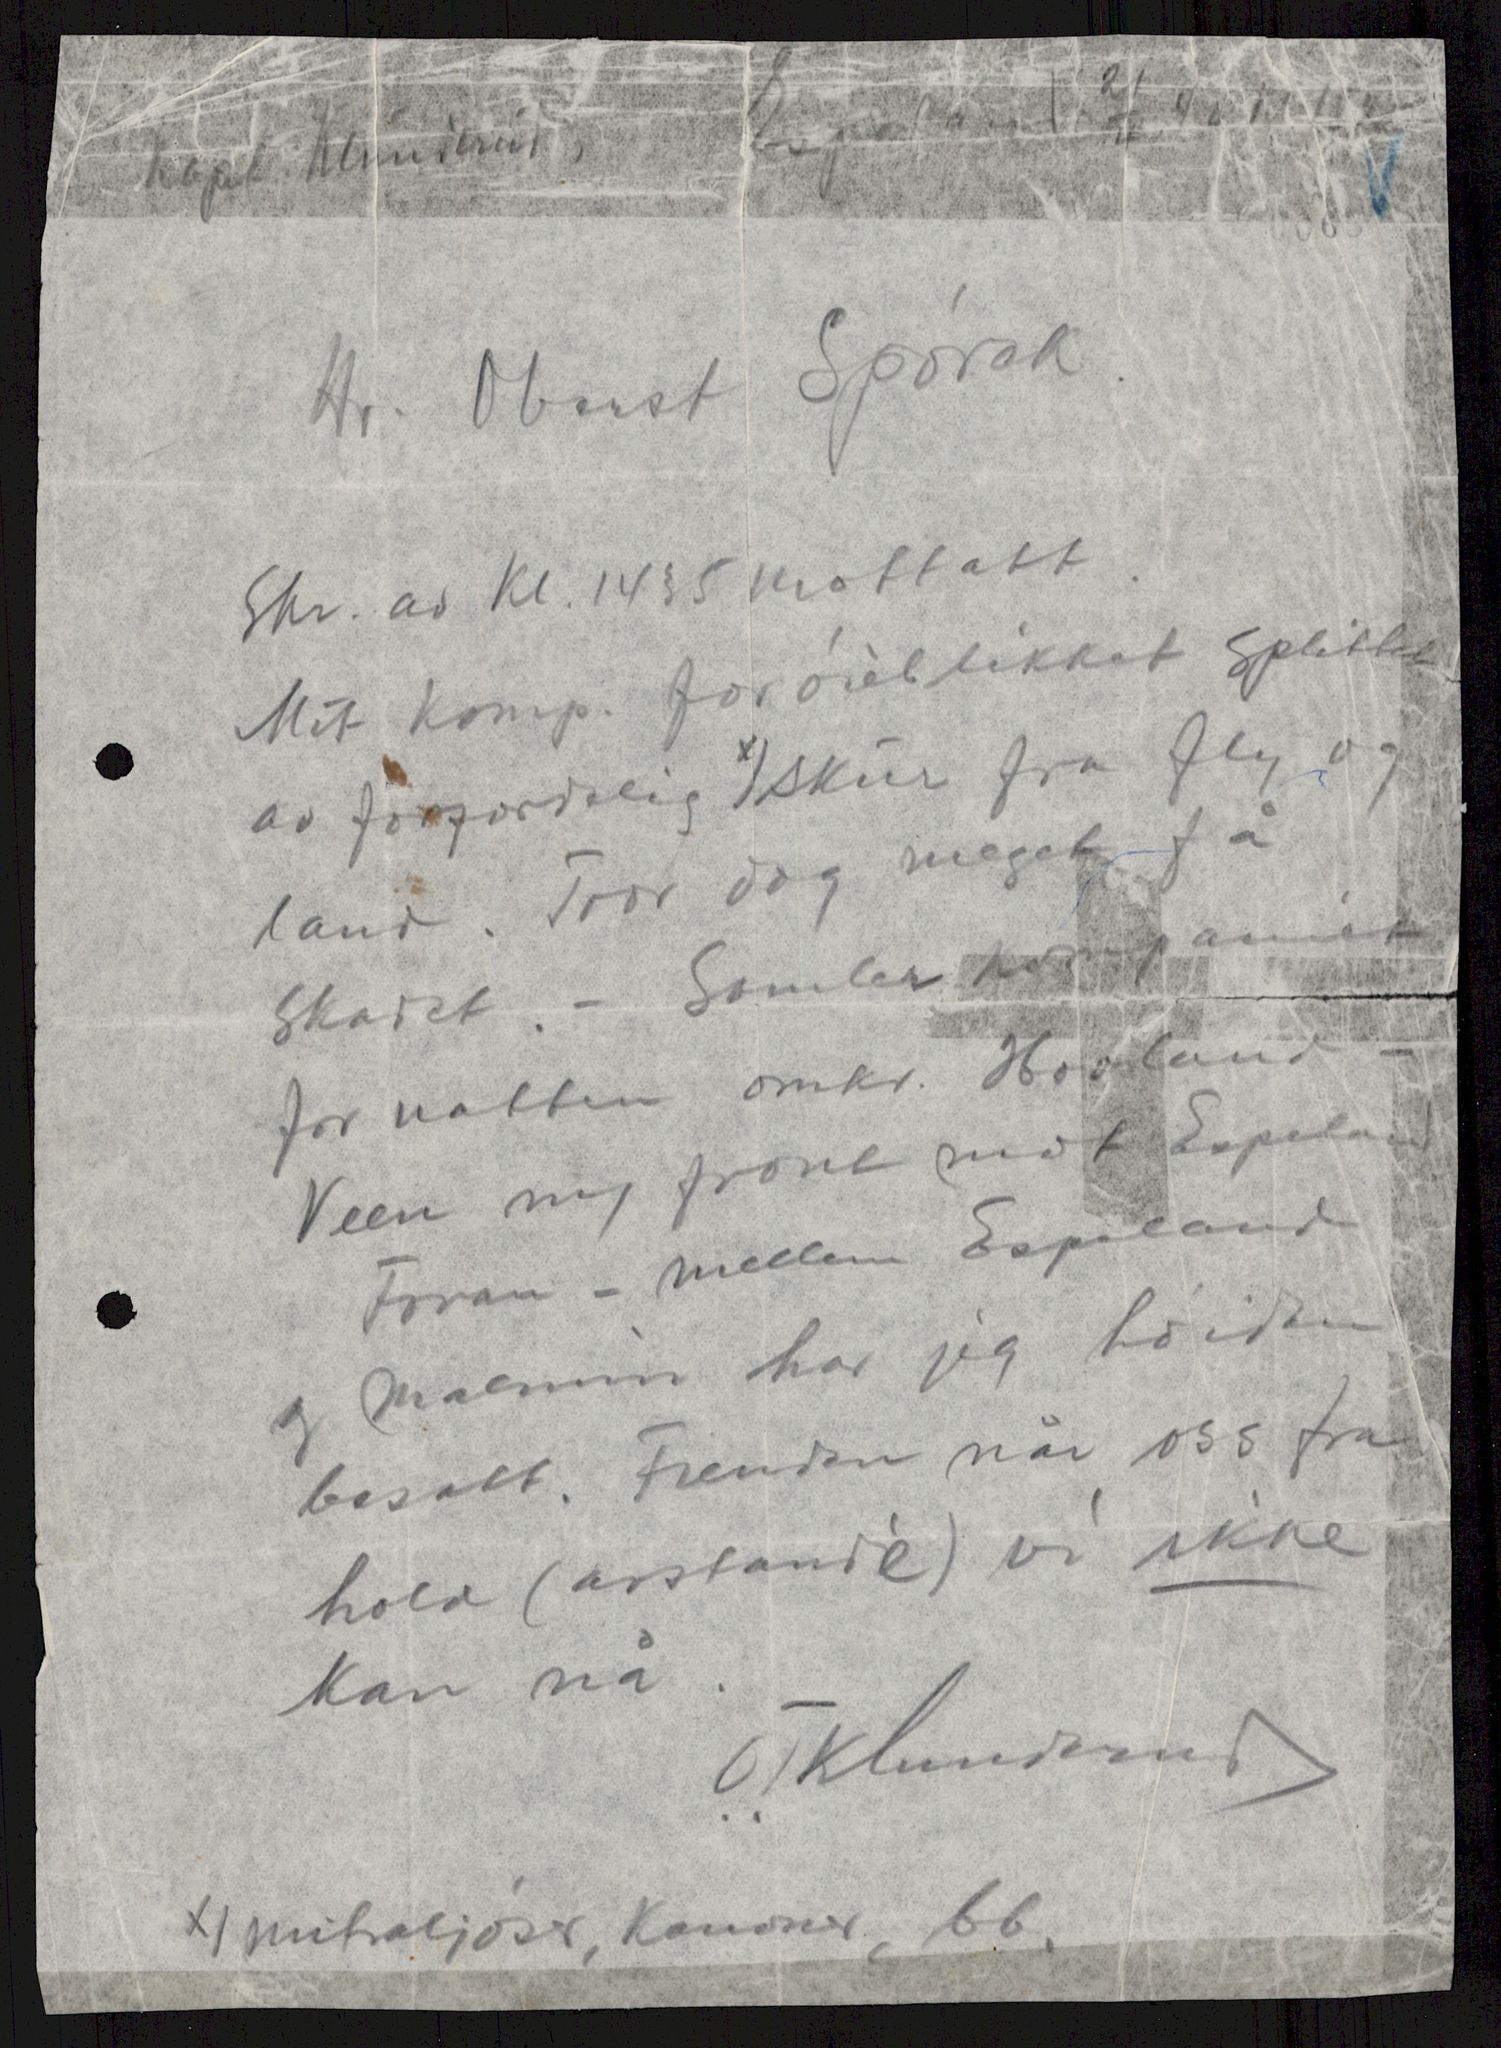 Kapt. Klunderud,
Espeland 21/4
Hr. Oberst Spörck.
Skr. av Kl. 1435 mottatt.
Mit Komp. for öieblikket splittet
av forferdelig x) skür fra fly og
land. Tror dog meget få
skadet. - Samler kompaniet
for natten omkr. Hovland -
Veen m/ front mot Espeland
Foran - mellem Espeland
og Malmin har jeg höiden
besatt. Fienden når oss fra
hold (avstande) vi ikke
kan nå.
OTKlunderud
x) mitraljöser, Kanoner, bb.